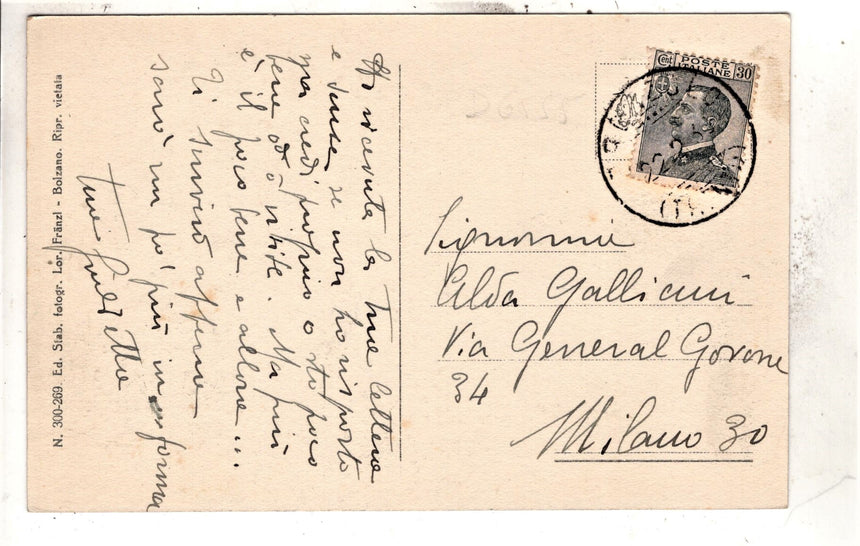 Ho ricevuta la tua lettera
e scusa se non ho risposto
ma credi proprio o sto poco
bene od ò visite. Ma più
è il poco bene e allora...
Ti scriverò appena
sarò un po' più in forma
tua
N. 300-269. Ed. Stab. fotogr. Lor. Fränzl - Bolzano. Ripr. vietata
Cent 30
POSTE
ITALIANE
Signorina
Alda Galliani
Via General Govone
34
Milano 30